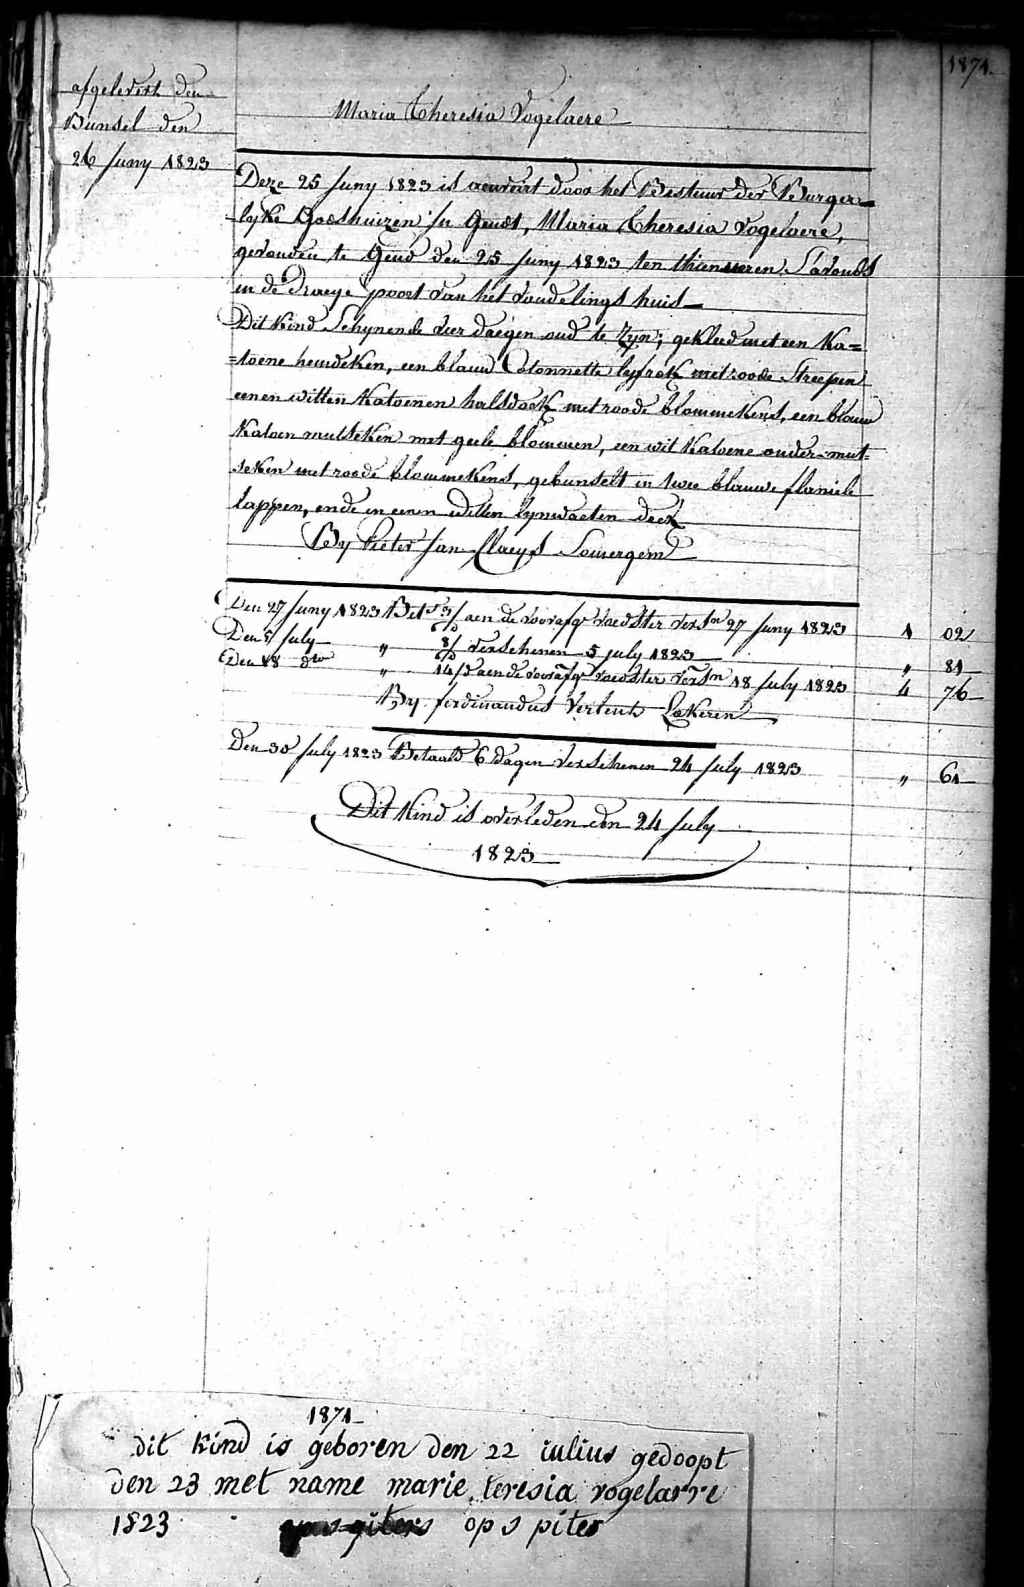 1871.
afgelevert den
Bunsel den
26 Juny 1823
Maria Theresia Vogelaere
Deze 25 Juny 1823 is aenveirt door het Bestuur der Burger-
lyke Godshuizen in Gendt, Maria Theresia Vogelaere,
gevonden te Gend den 25 Juny 1823 ten thien uren S'avonds
in de Draeye poort van het vondelings huis
Dit Kind Schynende vier daegen oud te Zyn; gekleed met een Ka=
=toene hemdeken, een blauw Cotonnette lyfrok met roode Streepen
eenen witten Katoenen halsdoek met roode blommekens, een blauw
Katoen mutseken met geele blommen, een wit Katoene onder-mut-
seken met roode blommekens, gebunselt in twee blauwe flaniele
lappen, ende in eenen witten lynwaeten doek
By Pieter Jan Claeys Somergem
Den 27 Juny 1823 Bet aen de voorafge voedster versn 27 Juny 1823 1 02
Den 5 July " 8/ verschenen 5 july 1823 " 81
Den 18 do " 14/ aen de voorafge voedster versn 18 July 1823 4 76
By ferdinandus Lokeren
Den 30 July 1823 Betaald 6 dagen verschenen 24 July 1823 " 61
Dit Kind is overleden den 24 July
1823
1871
dit kind is geboren den 22 iulius gedoopt
den 23 met name marie teresia vogelarre
1823 op s piter